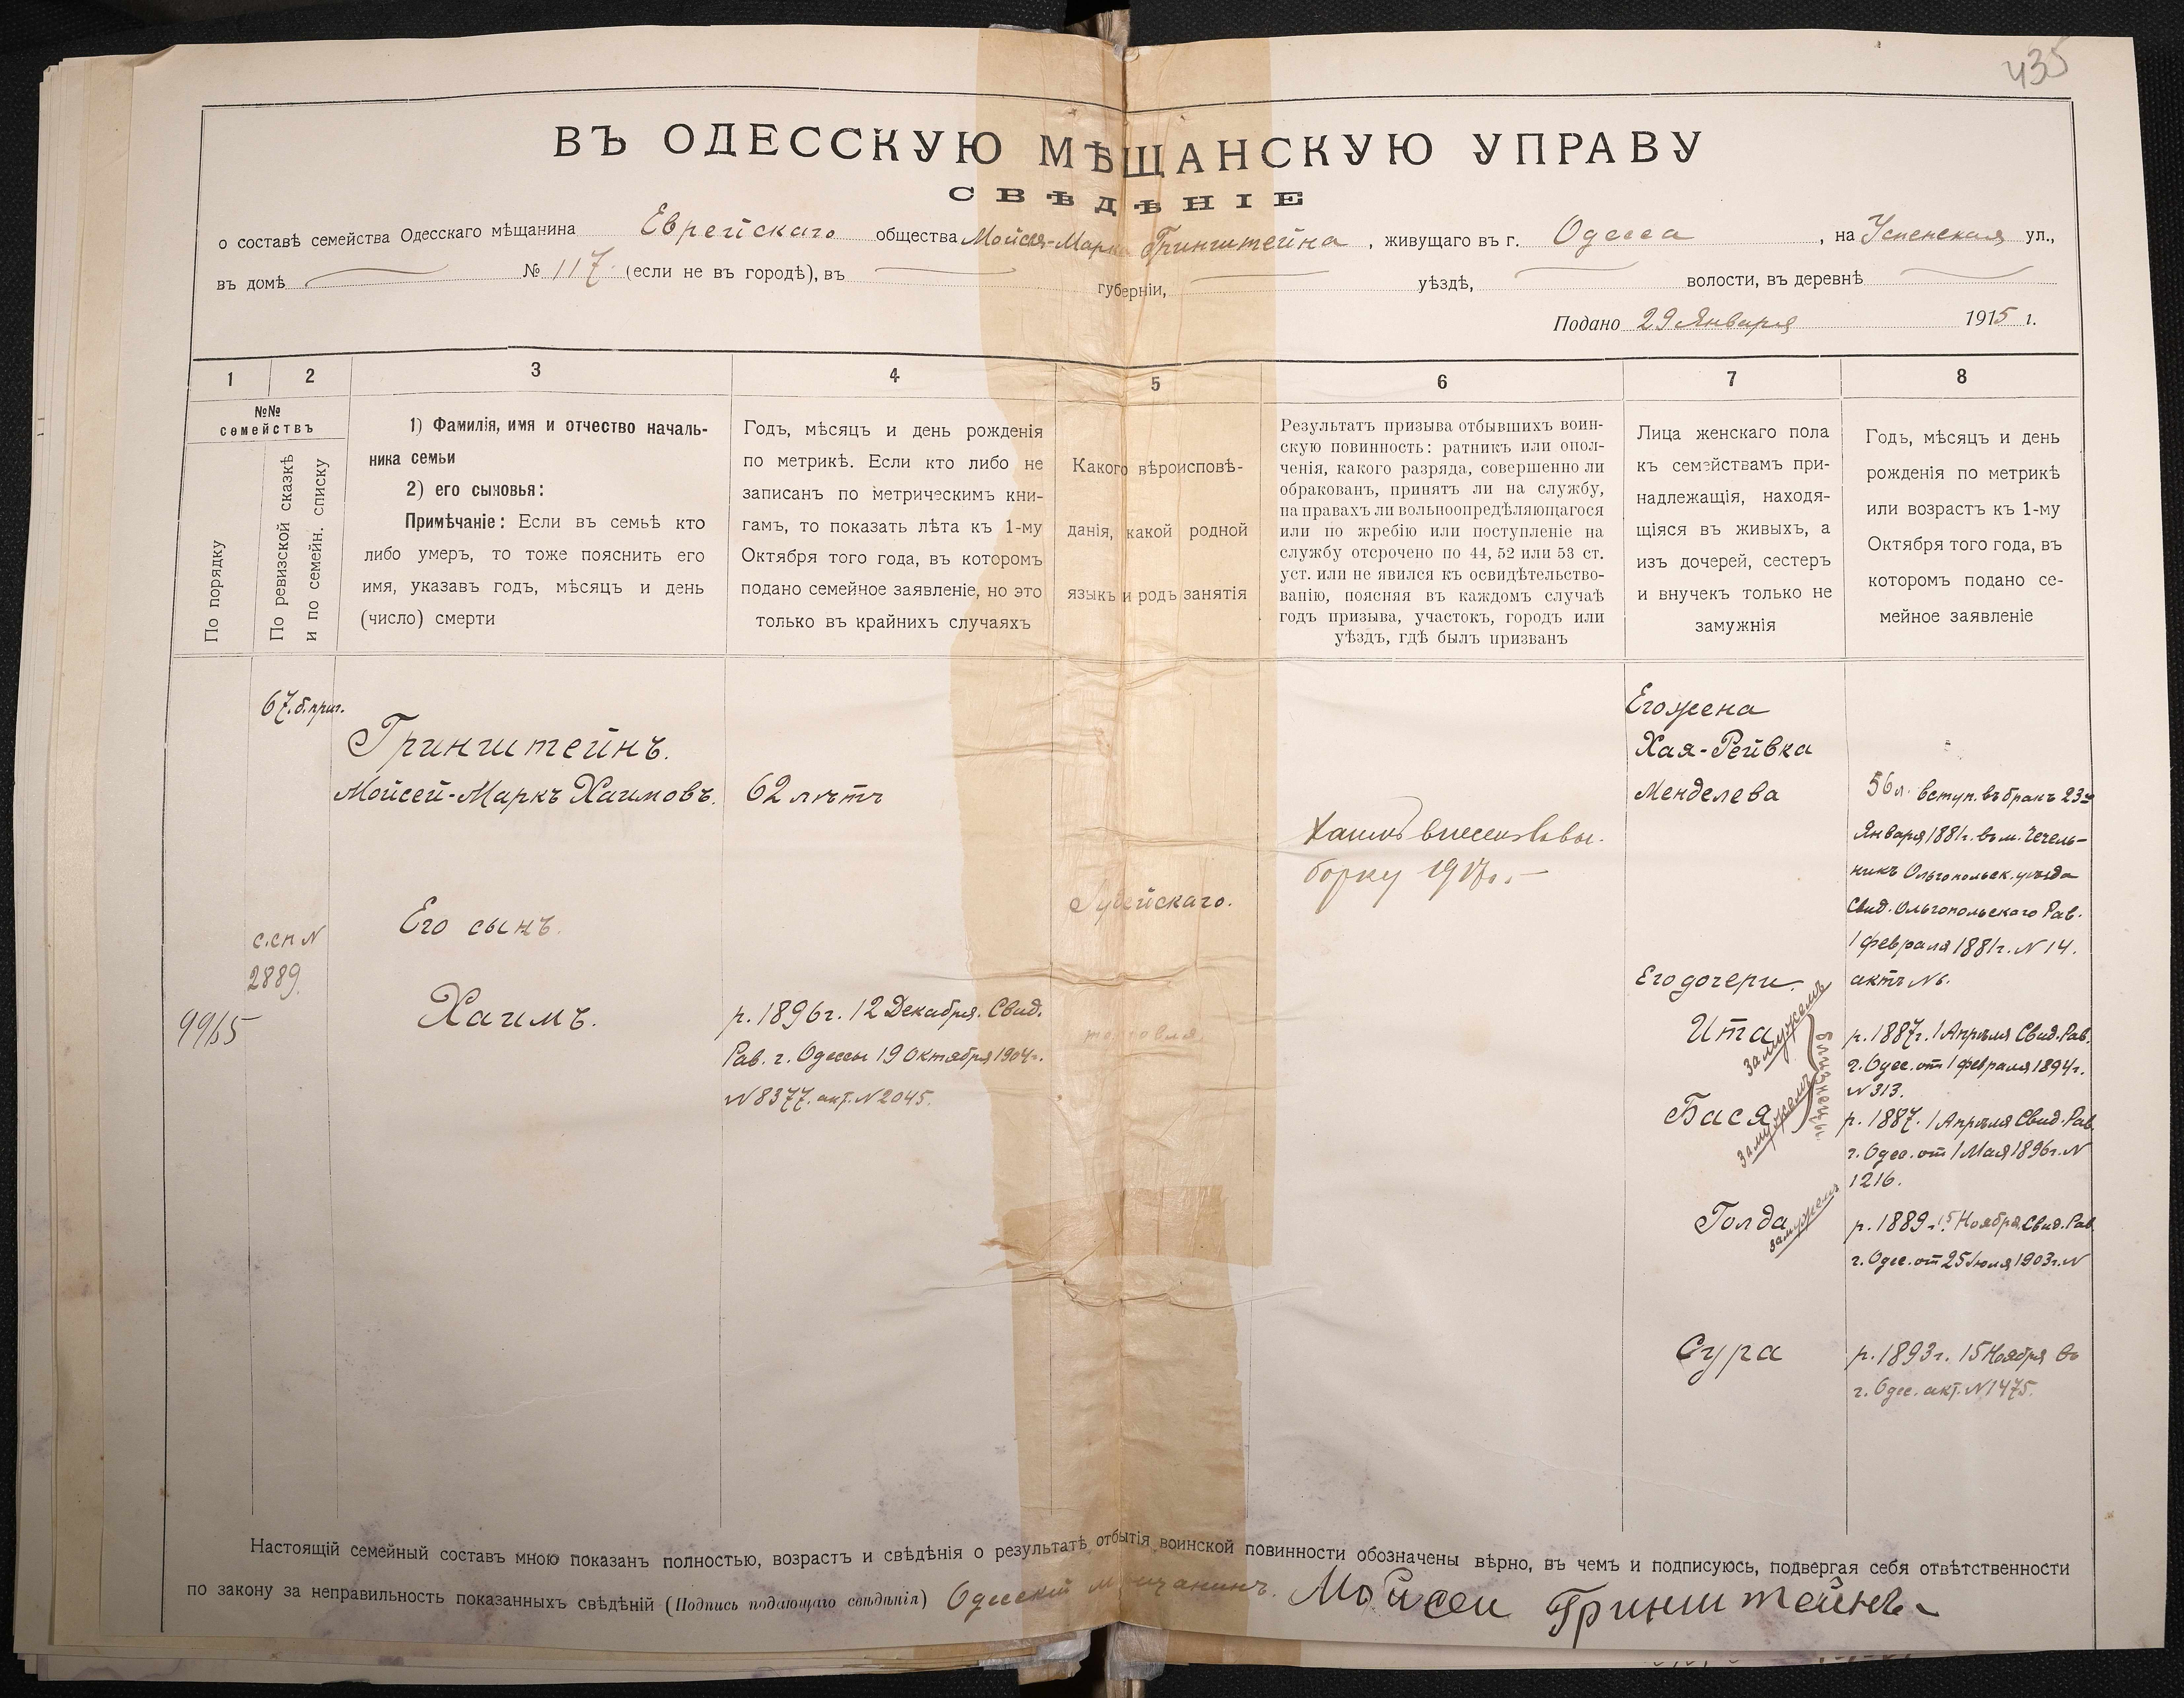 435
ВЪ ОДЕССКУЮ МѢЩАНСКУЮ УПРАВУ
СВѢДѢНІЕ
о составѣ семейства Одесскаго мѣщанина Еврейскаго общества Мойсея-Марка Гринштейна, живущаго въ г. Одесса, на Успенская ул.,
въ домѣ № 117 (если не въ городѣ), въ губерніи, уѣздѣ, волости, въ деревнѣ
Подано 29 Января 1915 г.
1 2 3 4 5 6 7 8
№№
семействъ
По порядку
По ревизской сказкѣ
и по семейн. списку
1) Фамилія, имя и отчество началь-
ника семьи
2) его сыновья:
Примѣчаніе: Если въ семьѣ кто
либо умеръ, то тоже пояснить его
имя, указавъ годъ, мѣсяцъ и день
(число) смерти
Годъ, мѣсяцъ и день рожденія
по метрикѣ. Если кто либо не
записанъ по метрическимъ кни-
гамъ, то показать лѣта къ 1-му
Октября того года, въ которомъ
подано семейное заявленіе, но это
только въ крайнихъ случаяхъ
Какого вѣроисповѣ-
данія, какой родной
языкъ и родъ занятія
Результатъ призыва отбывшихъ воин-
скую повинность: ратникъ или опол-
ченія, какого разряда, совершенно ли
обракованъ, принятъ ли на службу,
на правахъ ли вольноопредѣляющагося
или по жребію или поступленіе на
службу отсрочено по 44, 52 или 53 ст.
уст. или не явился къ освидѣтельство-
ванію, поясняя въ каждомъ случаѣ
годъ призыва, участокъ, городъ или
уѣздъ, гдѣ былъ призванъ
Лица женскаго пола
къ семействамъ при-
надлежащія, находя-
щіяся въ живыхъ, а
изъ дочерей, сестеръ
и внучекъ только не
замужнія
Годъ, мѣсяцъ и день
рожденія по метрикѣ
или возрастъ къ 1-му
Октября того года, въ
которомъ подано се-
мейное заявленіе
67. б. приг.
Гринштейнъ.
Мойсей-Маркъ Хаимовъ.
62 лѣтъ
Его сынъ.
с.сп N
2889.
9965
Хаимъ.
р. 1896г. 12 Декабря. Свид.
Рав. г. Одессы 19 Октября 1904г.
N 8377. акт. N 2045.
Іудейскаго.
торговля
Хаимъ внесенъ въ вы-
борку 1917г.
Его жена
Хая-Рейвка
Менделева
56 л. вступ. въ бракъ 23го
Января 1881г. въ м. Чечель-
никъ Ольгопольск. уѣзда
Свид. Ольгопольскаго Рав.
1 февраля 1881г. N 14.
актъ N 6.
Его дочери.
Ита
замужемъ
близнецы.
р. 1887г. 1 Апрѣля Свид. Рав.
г. Одес. от 1 февраля 1894г.
N 313.
Бася
замужемъ
р. 1887. 1 Апрѣля Свид. Рав.
г. Одес. от 1 Мая 1896г. N
1216.
Голда
замужемъ
р. 1889г. 15 Ноября. Свид. Рав.
г. Одес. от 25 Іюля 1903г. N
Сура
р. 1893г. 15 Ноября въ
г. Одес. акт. N 1475.
Настоящій семейный составъ мною показанъ полностью, возрастъ и свѣдѣнія о результатѣ отбытія воинской повинности обозначены вѣрно, въ чемъ и подписуюсь, подвергая себя отвѣтственности
по закону за неправильность показанныхъ свѣдѣній (Подпись подающаго свѣдѣнія) Одесскій мѣщанинъ. Мойсей Гринштейнъ